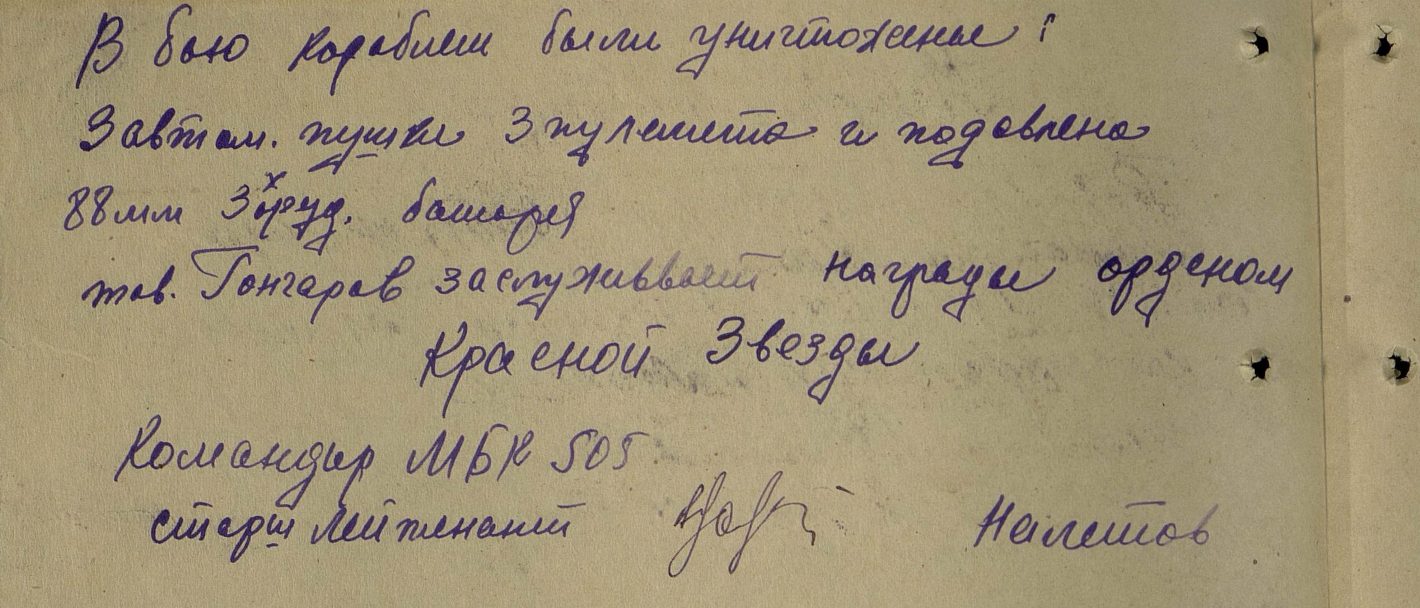 В бою кораблем были уничтожены:
3 автом. пушки 3 пулемета и подавлена
88мм 3х оруд. батарея
тов. Гончаров заслуживвает награды орденом
Красной Звезды
Командир МБК 505
старш лейтенант Налетов